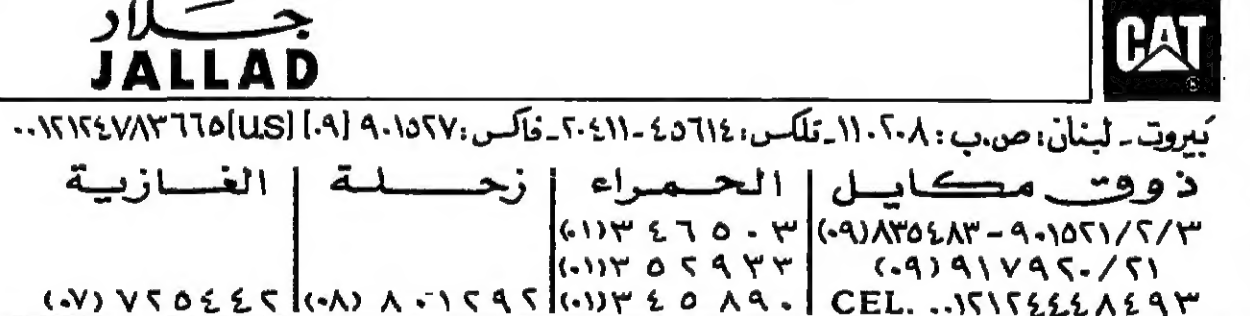 جلاد
JALLAD
CAT
بيروت ـ لبنان: ص.ب: ١١٠٢٠٨ ـ تلكس: ٤٥٦١٤ - ٢٠٤١١ ـ فاكس: ٩٠١٥٢٧ (٠٩) (U.S) ٠٠١٢١٢٤٧٨٣٦٦٥
ذوق مكايل | الحمراء | زحلة | الغازية
(٠٩) ٨٣٥٤٨٣ - ٩٠١٥٢١/٢/٣ | (٠١) ٣٤٦٥٠٣
(٠٩) ٩١٧٩٢٠/٢١ | (٠١) ٣٥٢٩٣٣
CEL. ٠٠١٢١٢٤٤٤٨٤٩٣ | (٠١) ٣٤٥٨٩٠ | (٠٨) ٨٠١٢٩٢ | (٠٧) ٧٢٥٤٤٢